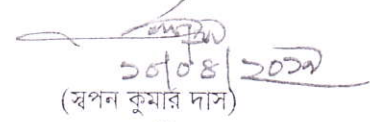 ১০/০৪/২০১৯
(স্বপন কুমার দাস)